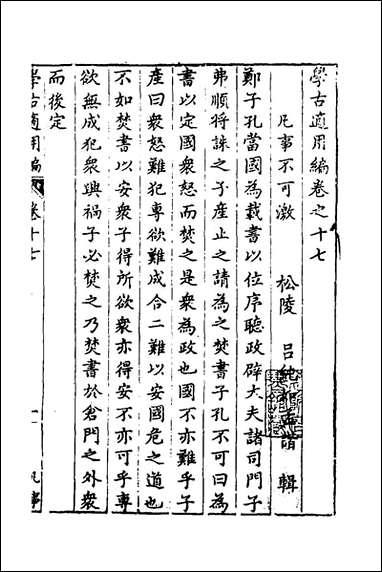 學古適用編卷之十七
凡事不可激
松陵 呂純如 輯
鄭子孔當國為載書以位序聽政辟大夫諸司門子
弗順將誅之子產止之請為之焚書子孔不可曰為
書以定國衆怒而焚之是衆為政也國不亦難乎子
產曰衆怒難犯專欲難成合二難以安國危之道也
不如焚書以安衆子得所欲衆亦得安不亦可乎專
欲無成犯衆興禍子必焚之乃焚書於倉門之外衆
而後定
學古適用編 卷十七 一 凡事